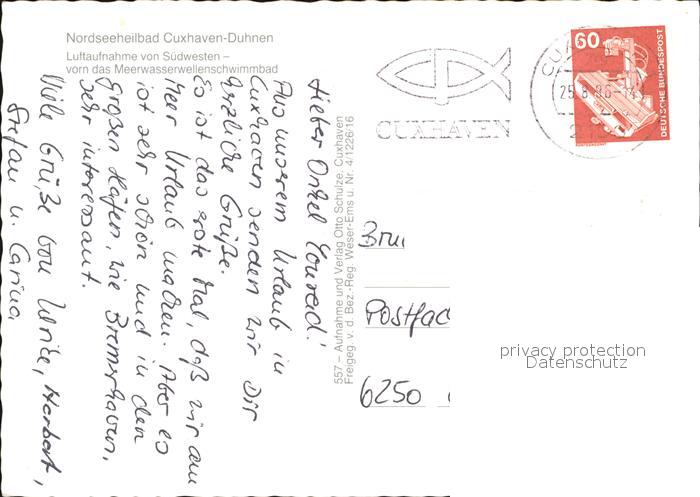 Nordseeheilbad Cuxhaven-Duhnen
Luftaufnahme von Südwesten –
vorn das Meerwasserwellenschwimmbad
Lieber Onkel Konrad!
Aus unserem Urlaub in
Cuxhaven senden wir Dir
herzliche Grüße.
Es ist das erste Mal, daß wir am
Meer Urlaub machen. Aber es
ist sehr schön und in den
großen Häfen, wie Bremerhaven,
sehr interessant.
Viele Grüße von Ulrike, Herbert,
Stefan u. Carina
557 – Aufnahme und Verlag Otto Schulze, Cuxhaven
Freigeg. v. d. Bez.-Reg. Weser-Ems u. Nr. 4/1226/16
CUXHAVEN
25.8.86-14
60
DEUTSCHE BUNDESPOST
Postfac
6250
privacy protection
Datenschutz